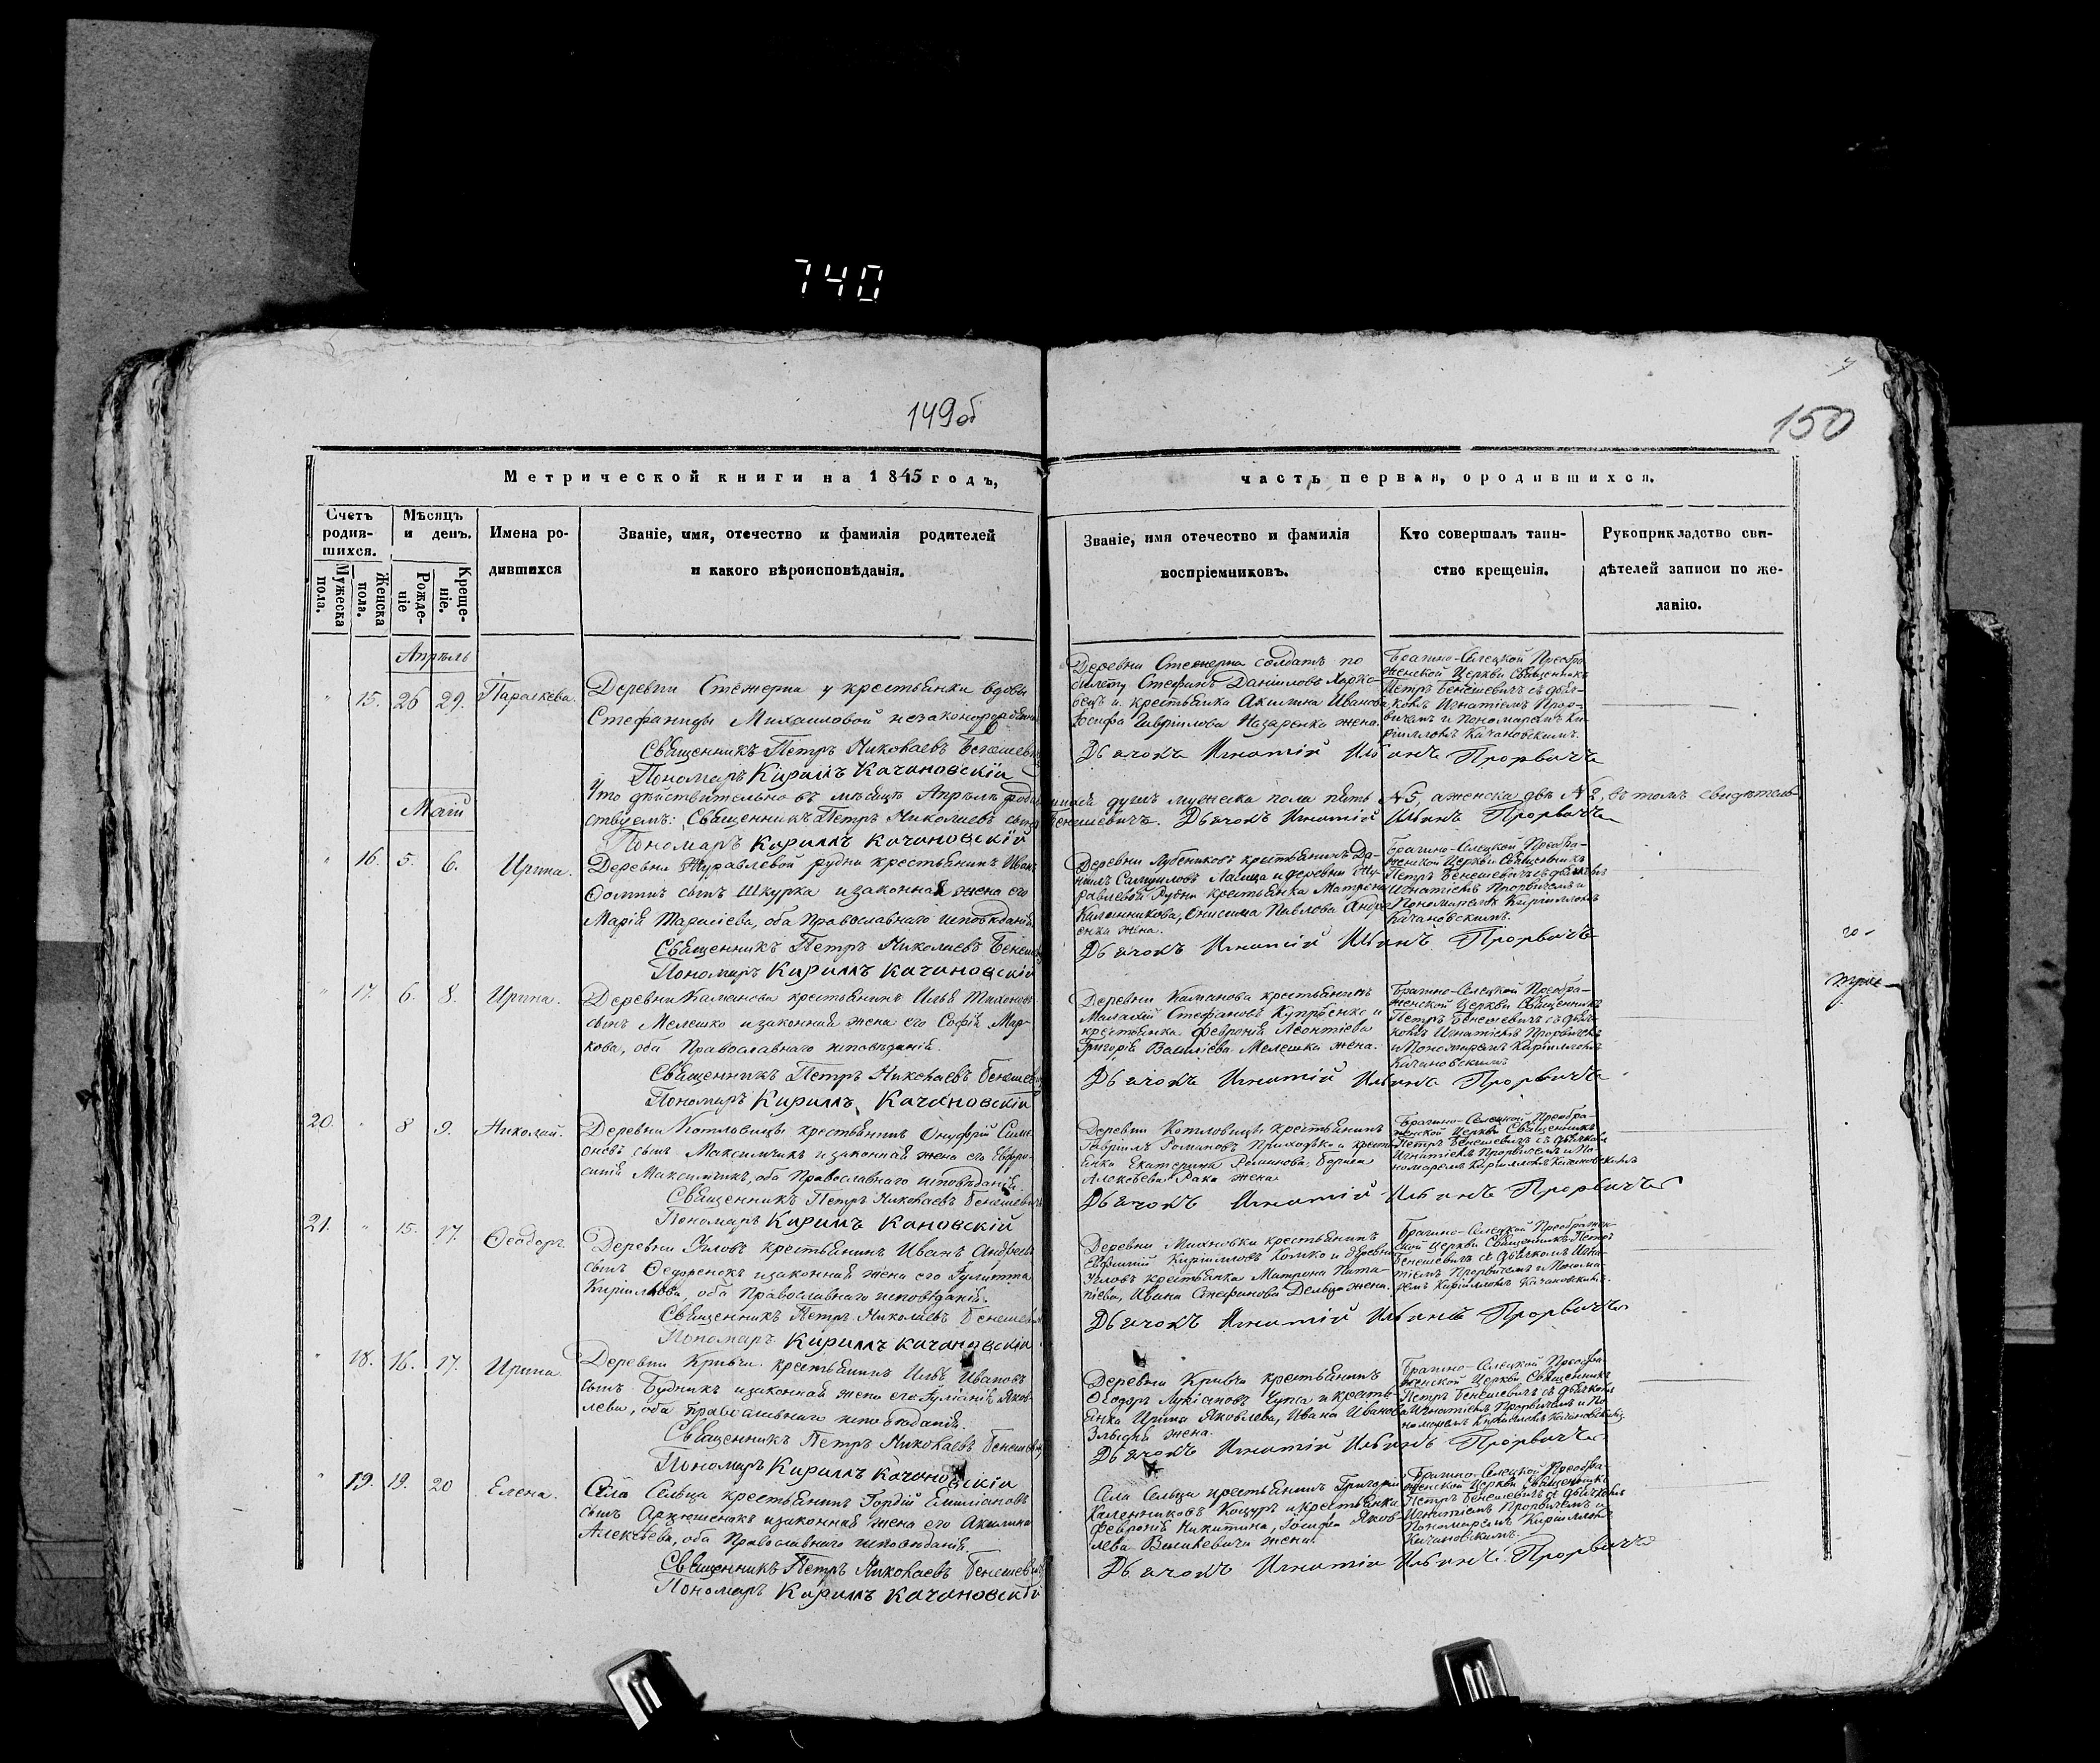 740
149об
150
Метрической книги на 1845 годъ,
часть первая, о родившихся.
Счетъ родив-шихся.
Мѣсяцъ и день.
Имена ро-
дившихся
Званіе, имя, отечество и фамилія родителей
и какого вѣроисповѣданія.
Званіе, имя отечество и фамилія
воспріемниковъ.
Кто совершалъ таин-
ство крещенія.
Рукоприкладство сви-
дѣтелей записи по же-
ланію.
Мужеска пола.
Женска пола.
Рожде-ніе
Креще-ніе.
Апрѣль
" 15. 26 29. Параскева.
Деревни Стежерна у крестьянки вдовы
Стефаниды Михаиловой незаконнорожденна
Священникъ Петръ Николаевъ Бенешевичъ
Пономарь Кирилъ Качановскій
Деревни Стежерна солдатъ по
билету Стефанъ Даніиловъ Харко-
вецъ и крестьянка Акилина Иванова
Іосифа Гавріилова Назаренка жена.
Дьячокъ Игнатій Ильинъ Прорвичъ
Брагино-Селецкой Преобра-
женской Церкви Священникъ
Петръ Бенешевичъ съ дьяч-
комъ Игнатіемъ Прор-
вичемъ и пономаремъ Ки-
рилломъ Качановскимъ.
Что дѣйствительно въ мѣсяцѣ Апрѣлѣ родившихся душъ мужеска пола пять №5, а женска двѣ №2, въ томъ свидѣтель-
ствуемъ: Священникъ Петръ Николаевъ сынъ Бенешевичъ. Дьячокъ Игнатій Ильинъ Прорвичъ
Пономарь Кирилъ Качановскій
Май
" 16. 5. 6. Ирина.
Деревни Журавлевой рудни крестьянинъ Иванъ
Фоминъ сынъ Шкурка и законная жена его
Марія Тарасіева, оба Православнаго исповѣданія.
Священникъ Петръ Николаевъ Бенешевичъ
Пономарь Кирилъ Качановскій
Деревни крестьянинъ Да-
ніилъ Самуиловъ и деревни Жу-
равлевой Рудни крестьянка Матрена
Калинникова, Онисима Павлова Андре
енка жена.
Дьячокъ Игнатій Ильинъ Прорвичъ
Брагино-Селецкой Преобра-
женской Церкви Священникъ
Петръ Бенешевичъ съ дьячкомъ
Игнатіемъ Прорвичемъ и
Пономаремъ Кирилломъ
Качановскимъ.
" 17. 6. 8. Ирина.
Деревни Каманова крестьянинъ Илья Тихоновъ
сынъ Мелешко и законная жена его Софія Мар-
кова, оба Православнаго исповѣданія.
Священникъ Петръ Николаевъ Бенешевичъ
Пономарь Кирилъ Качановскій
Деревни Каманова крестьянинъ
Малахій Стефановъ Купрѣенко и
крестьянка Февронія Леонтіева
Григорія Василіева Мелешка жена.
Дьячокъ Игнатій Ильинъ Прорвичъ
Брагино-Селецкой Преобра-
женской Церкви Священникъ
Петръ Бенешевичъ съ дьяч-
комъ Игнатіемъ Прорвичемъ
и Пономаремъ Кирилломъ
Качановскимъ
20. " 8 9. Николай.
Деревни Котловицы крестьянинъ Онуфрій Симе-
оновъ сынъ Максимчикъ и законная жена его Евфро-
синія Максимчикъ, оба Православнаго исповѣданія.
Священникъ Петръ Николаевъ Бенешевичъ
Пономарь Кирилъ Кановскій
Деревни Котловицы крестьянинъ
Гавріилъ Романовъ Приходько и кресть
янка Екатерина Романова, Бориса
Алексѣева Рака жена
Дьячокъ Игнатій Ильинъ Прорвичъ
Брагино-Селецкой Преобра-
женской Церкви Священникъ
Петръ Бенешевичъ съ дьячкомъ
Игнатіемъ Прорвичемъ и По-
номаремъ Кирилломъ Качановскимъ
21. " 15. 17. Ѳеодоръ.
Деревни Угловъ крестьянинъ Иванъ Андреевъ
сынъ Ѳедоренокъ и законная жена его Іулитта
Кириллова, оба Православнаго исповѣданія.
Священникъ Петръ Николаевъ Бенешевичъ
Пономарь Кирилъ Качановскій
Деревни Михновки крестьянинъ
Евфимій Кирилловъ Хомко и деревни
Угловъ крестьянка Матрона
Ивана Стефанова жена.
Дьячокъ Игнатій Ильинъ Прорвичъ
Брагино-Селецкой Преображен-
ской Церкви Священникъ Петръ
Бенешевичъ съ дьячкомъ Игна-
тіемъ Прорвичемъ и Понома-
ремъ Кирилломъ Качановскимъ.
" 18. 16. 17. Ирина
Деревни Кривчи крестьянинъ Илья Ивановъ
сынъ Будникъ и законная жена его Іуліанія Яков-
лева, оба Православнаго исповѣданія.
Священникъ Петръ Николаевъ Бенешевичъ
Пономарь Кирилъ Качановскій
Деревни Кривчи крестьянинъ
Ѳеодоръ Лукіановъ и кресть-
янка Ирина Яковлева, Ивана Иванова
жена.
Дьячокъ Игнатій Ильинъ Прорвичъ
Брагино-Селецкой Преобра-
женской Церкви Священникъ
Петръ Бенешевичъ съ дьячкомъ
Игнатіемъ Прорвичемъ и По-
номаремъ Кирилломъ Качановскимъ
" 19. 19. 20 Елена.
Села Сельца крестьянинъ Гордій Емиліановъ
сынъ Арцюшенокъ и законная жена его Акилина
Алексѣева, оба Православнаго исповѣданія.
Священникъ Петръ Николаевъ Бенешевичъ
Пономарь Кирилъ Качановскій
Села Сельца крестьянинъ Григорій
Каленниковъ Коцуръ и крестьянка
Февронія Никитина, Іосифа Яков-
лева жена.
Дьячокъ Игнатій Ильинъ Прорвичъ
Брагино-Селецкой Преобра-
женской Церкви Священникъ
Петръ Бенешевичъ съ дьячкомъ
Игнатіемъ Прорвичемъ и
Пономаремъ Кирилломъ
Качановскимъ.